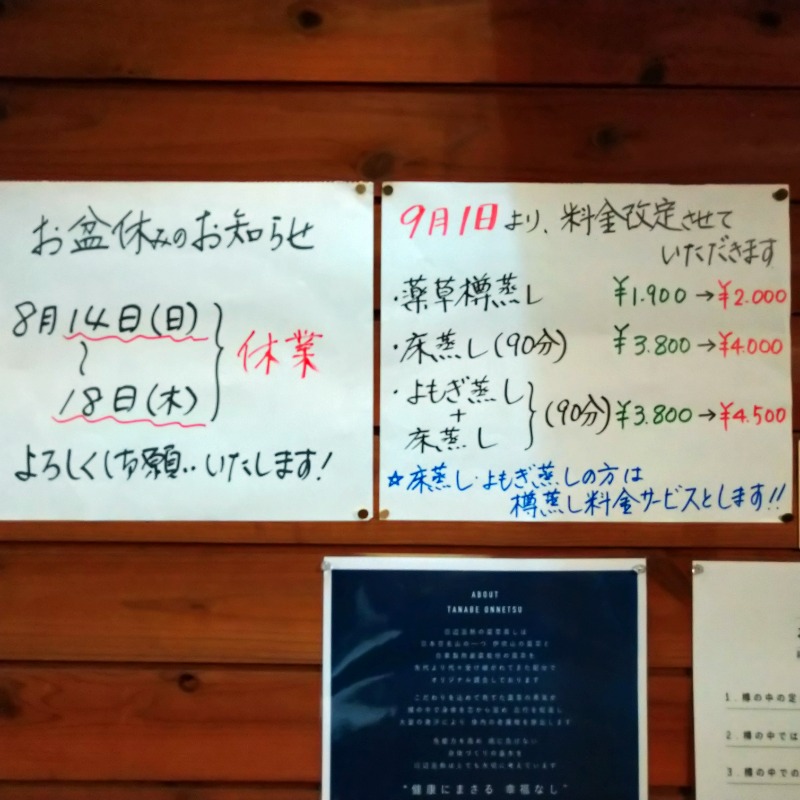 お盆休みのお知らせ
8月14日(日)
〜
18日(木)
休業
よろしくお願いいたします!
9月1日より、料金改定させて
いただきます
・薬草樽蒸し ¥1.900→¥2.000
・床蒸し(90分) ¥3.800→¥4.000
・よもぎ蒸し
+
床蒸し
(90分)¥3.800→¥4.500
☆床蒸し・よもぎ蒸しの方は
樽蒸し料金サービスとします!!
ABOUT
TANABE ONNETSU
オリジナル調合しております
"健康にまさる 幸福なし"
1.樽の中の定
2.樽の中では
3.樽の中での